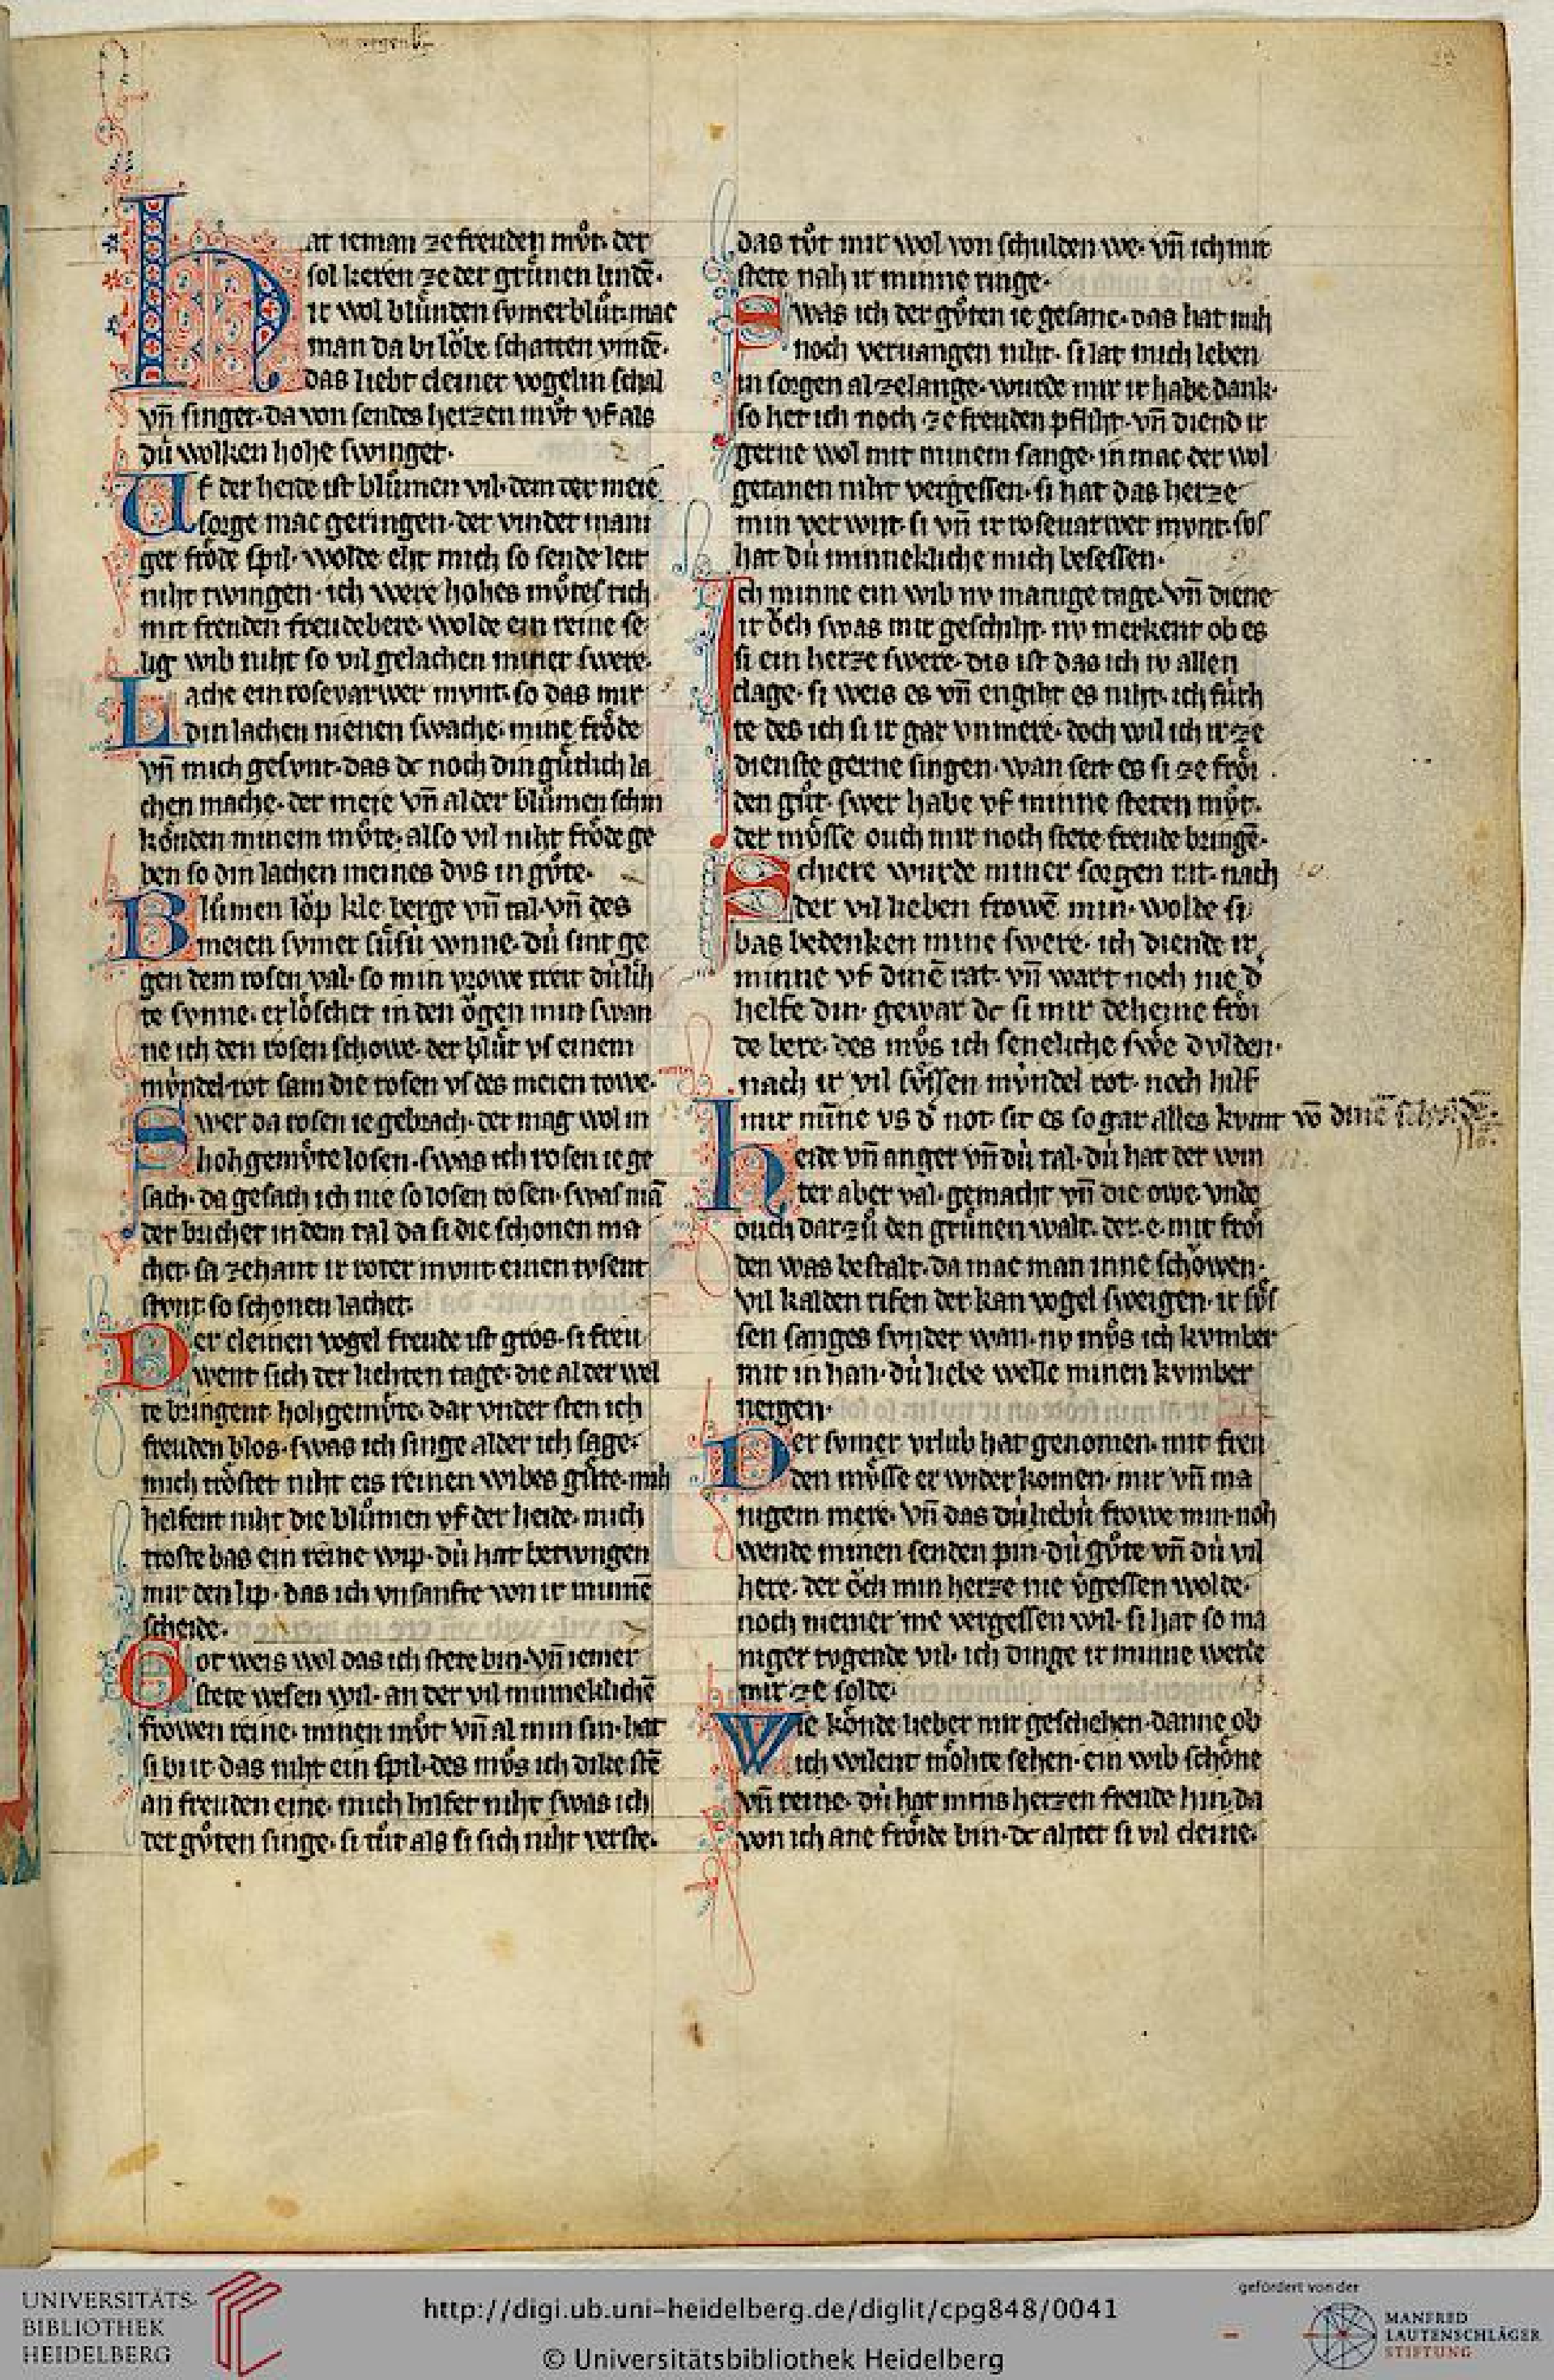 Hat ieman ze freuden můt. der
sol keren ze der grůnen lindē.
ir wol blůnden sumer blůt. mac
man da bi lŏbe schatten vindē.
das liebt cleiner vogelin schal
vn̄ singet. da von sendes herzen můt vf als
dú wolken hohe swinget.
Uf der heide ist blůmen vil. dem der meie
sorge mac geringen. der vindet mani
ger frŏde spil. wolde eht mich so sende leit
niht twingen. ich were hohes můtes rich
mit freuden freudebere. wolde ein reine se
lig wib niht so vil gelachen miner swere.
Lache ein rosevarwer munt. so das mir
din lachen nienen swache. mine frŏde
vn̄ mich gesunt. das dc noch din gůtlich la
chen mache. der meie vn̄ al der blůmen schin
kŏnden minem můte. also vil niht frŏde ge
ben so din lachen meines dvs in gůte.
Blůmen lŏp kle berge vn̄ tal. vn̄ des
meien sumer sůsú wnne. dú sint ge
gen dem rosen val. so min vrowe treit dú lih
te sunne. erlŏschet in den ŏgen min swan
ne ich den rosen schowe. der blůt vs einem
mvndel rot sam die rosen vs des meien towe.
Swer da rosen ie gebrach. der mag wol in
hohgemůte losen. swas ich rosen ie ge
sach. da gesach ich nie so losen rosen. swas mā
der brichet in dem tal da si die schonen ma
chet. sa zehant ir roter munt einen tvsent
stunt so schonen lachet.
Der cleinen vogel freude ist gros. si freu
went sich der liehten tage. die al der wel
te bringent hohgemůte. dar vnder sten ich
freuden blos. swas ich singe alder ich sage.
mich trŏstet niht eis reinen wibes gůte. mih
helfent niht die blůmen vf der heide. mich
troste bas ein reine wip. dú hat betwngen
mir den lip. das ich vnsanfte von ir minnē
scheide.
Got weis wol das ich stete bin. vn̄ iemer
stete wesen wil. an der vil minneklichē
frowen reine. minen můt vn̄ al min sin. hat
si bi ir das niht ein spil. des můs ich dike stē
an freuden eine. mich hilfet niht swas ich
der gůten singe. si tůt als si sich niht verste.
das tůt mir wol von schulden we. vn̄ ich mit
stete nah ir minne ringe.
Swas ich der gůten ie gesanc. das hat mih
noch vervangen niht. si lat mich leben
in sorgen al zelange. wurde mir ir habedank.
so het ich noch ze freuden pfliht. vn̄ diend ir
gerne wol mit minem sange. in mac der wol
getanen niht vergessen. si hat das herze
min verwnt. si vn̄ ir rosevarwer munt. sus
hat dú minnekliche mich besessen.
Ich minne ein wib nv manige tage. vn̄ diene
ir ŏch swas mir geschiht. nv merkent ob es
si ein herze swere. dis ist das ich iv allen
clage. si weis es vn̄ engiht es niht. ich fúrh
te des ich si ir gar vnmere. doch wil ich ir ze
dienste gerne singen. wan seit es si ze frŏi
den gůt. swer habe vf minne steten můt.
der můsse ouch mir noch stete freude bringē.
Schiere wurde miner sorgen rat. nach
der vil lieben frowē min. wolde si
bas bedenken mine swere. ich diende ir
minne vf dinē rat. vn̄ wart noch nie d̄
helfe din. gewar dc si mir deheine frŏi
de bere. des můs ich senelliche swe dvlden.
nach ir vil sůssen mvndel rot. noch hilf
mir mīne vs d̄ not. sit es so gar alles kumt vō dinē schuldē.
Heide vn̄ anger vn̄ dú tal. dú hat der win
ter aber val. gemachet vn̄ die owe. vnde
ouch dar zů den grůnen walt. der. e. mit frŏi
den was bestalt. da mac man inne schŏwen.
vil kalden rifen der kan vogel sweigen. ir sůs
sen sanges sunder wan. nv můs ich kvmber
mit in han. dú liebe welle minen kvmber
neigen.
Der sumer vrlub hat genomen. mit freu
den můsse er wider komen. mir vn̄ ma
nigem mere. vn̄ das dú liebú frowe min. noh
wende minen senden pin. dú gůte vn̄ dú vil
here. der ŏch min herze nie v̄gessen wolde.
noch niemer me vergessen wil. si hat so ma
niger tugende vil. ich dinge ir minne werde
mir ze solde.
Wie kŏnde lieber mir geschehen. danne ob
ich wilent mŏhte sehen. ein wib schŏne
vn̄ reine. dú hat mins herzen freude hin. da
von ich ane frŏide bin. dc ahtet si vil cleine.
UNIVERSITÄTS-
BIBLIOTHEK
HEIDELBERG
http://digi.ub.uni-heidelberg.de/diglit/cpg848/0041
© Universitätsbibliothek Heidelberg
gefördert von der
MANFRED
LAUTENSCHLÄGER
STIFTUNG